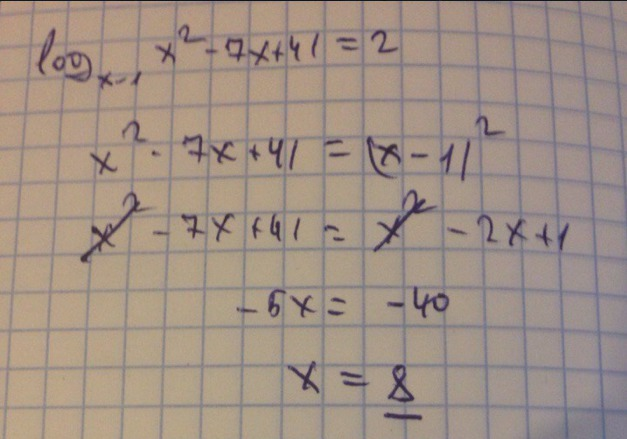 log x-1 x² - 7x+41 = 2
x² - 7x +41 = (x - 1)²
x² - 7x +41 = x² - 2x+1
- 5x = -40
x = 8